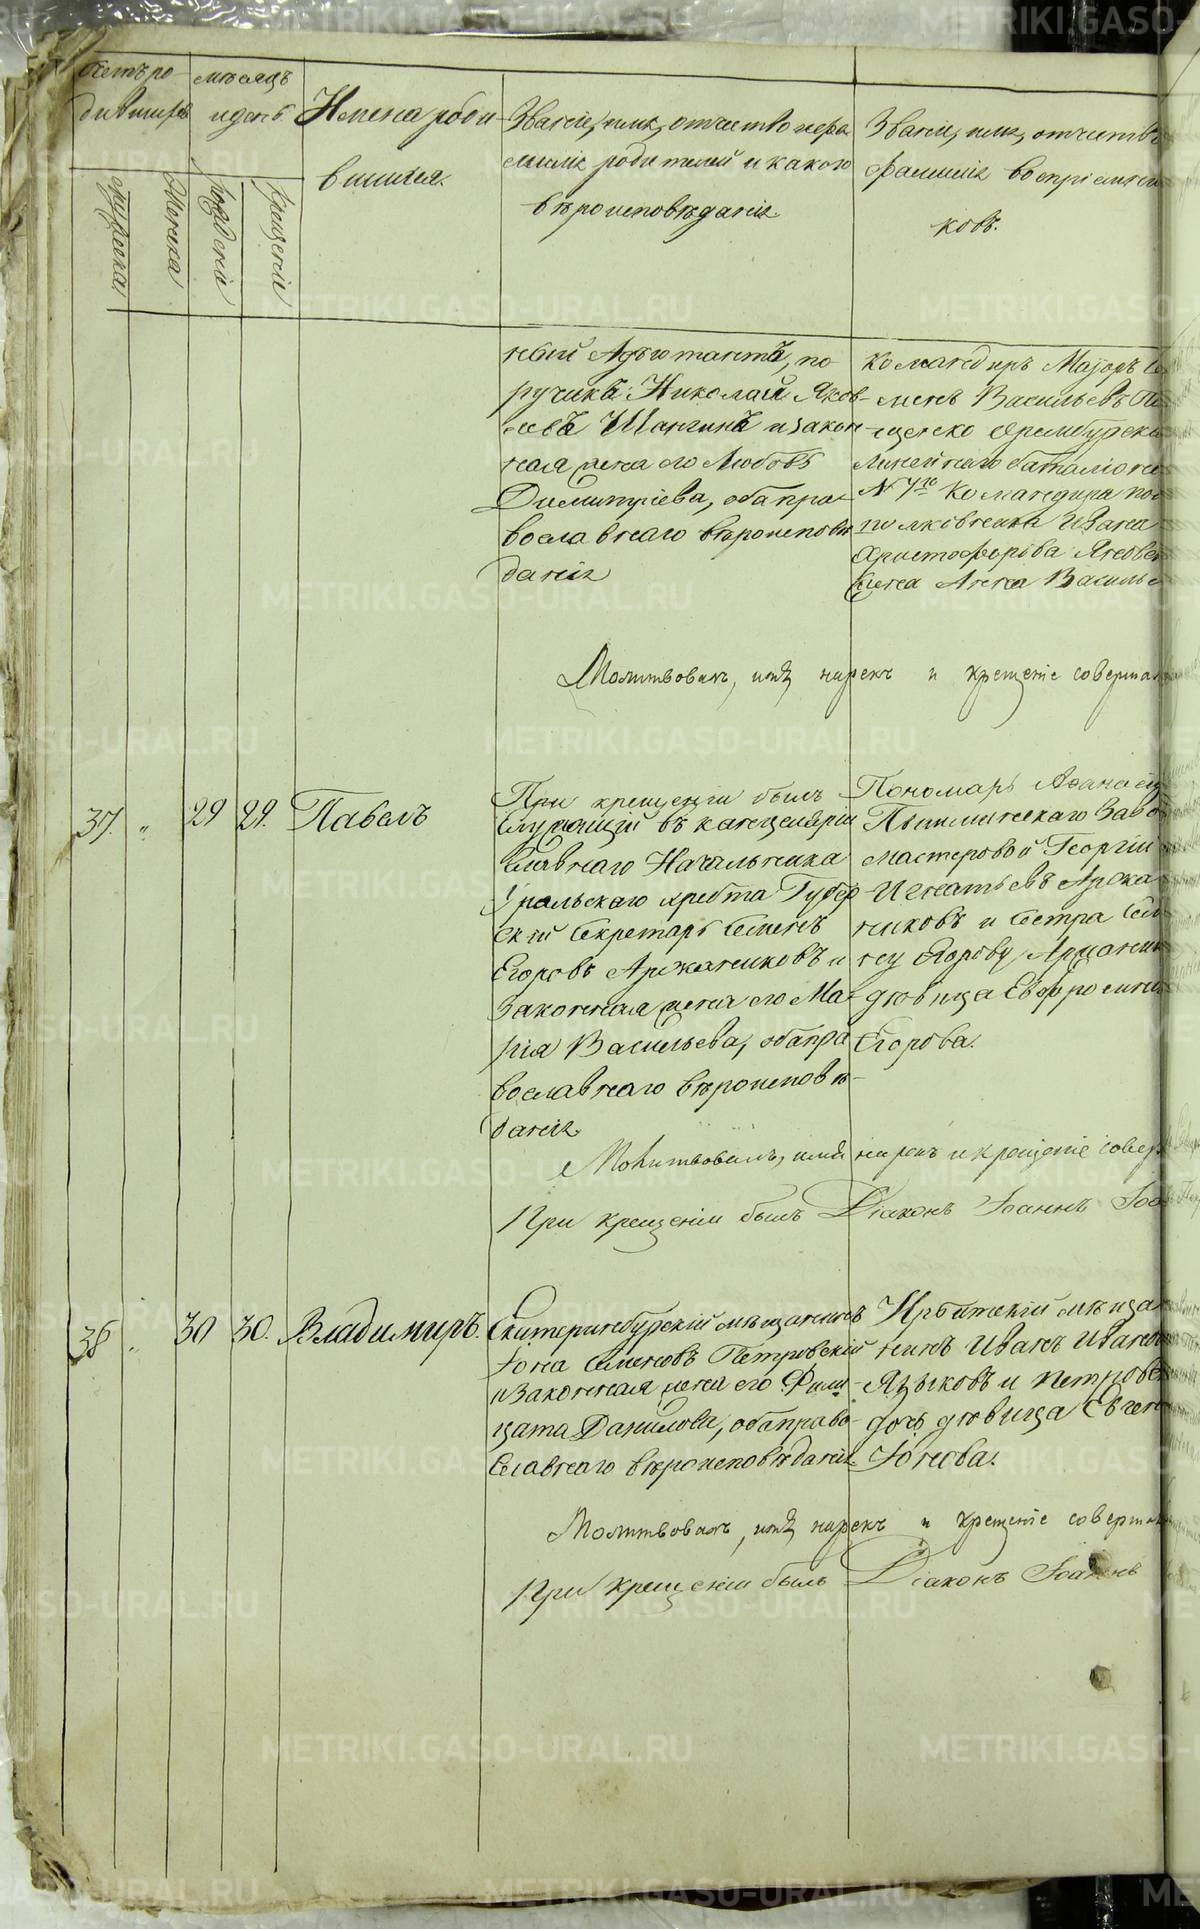 Счетъ ро-
дившихся
мѣсяцъ
и день.
Имена роди-
вшихся.
Званіе, имя, отчество и фа-
миліи родителей и какого
вѣроисповѣданія.
Званіе, имя, отчество
фамилія воспріемни-
ковъ.
мужеска
женска
рожденія
крещенія
ный Адъютантъ, по-
ручикъ Николай Яков-
левъ Шангинъ и закон-
ная жена его Любовь
Димитріева, оба пра-
вославнаго вѣроисповѣ-
данія
Командиръ Маіоръ Се-
менъ Васильевъ
Оренбургска
Линейнаго баталіона
№ 7го Командира под-
полковника Ивана
Христофорова Яковл
жена Анна Василье
Молитвовалъ, имя нарекъ и крещеніе совершал
37. „ 29 29. Павелъ
При крещеніи былъ Пономарь Афанасій
Служащій въ канцеляріи
Главнаго Начальника
Уральскаго хребта Губер-
скій Секретарь Семенъ
Егоровъ Аржанниковъ и
законная жена его Ма-
рія Васильева, оба пра-
вославнаго вѣроисповѣ-
данія.
Пышминскаго Заво
мастеровой Георгій
Игнатьевъ Аржан-
никовъ и Сестра Семе-
ну Егорову Аржанник
дѣвица Евфросинія
Егорова.
Молитвовалъ, имя нарекъ и крещеніе совер
При крещеніи былъ Діаконъ Іоаннъ
38 „ 30 30. Владимиръ.
Екатеринбурскій мѣщанинъ
Іона Семеновъ Петровскій
и законная жена его Фили-
цата Данилова, оба право-
славнаго вѣроисповѣданія.
Ирбитскій мѣща-
нинъ Иванъ Иванов
Языковъ и Петровс
дочь дѣвица Евген
Іонова.
Молитвовалъ, имя нарекъ и крещеніе соверша
При крещеніи былъ Діаконъ Іоаннъ
METRIKI.GASO-URAL.RU